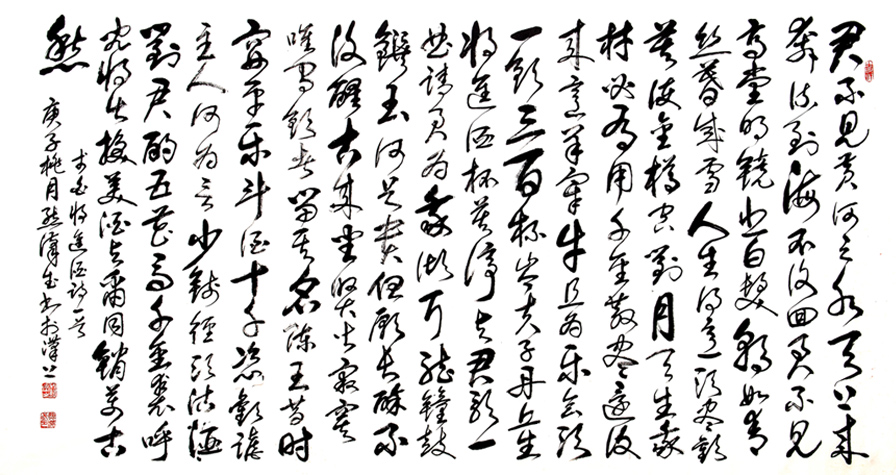 君不見黃河之水天上來
奔流到海不復回君不見
高堂明鏡悲白髮朝如青
絲暮成雪人生得意須盡歡
莫使金樽空對月天生我
材必有用千金散盡還復
來烹羊宰牛且為樂會須
一飲三百杯岑夫子丹丘生
將進酒杯莫停與君歌一
曲請君為我傾耳聽鐘鼓
饌玉何足貴但願長醉不
復醒古來聖賢皆寂寞
唯有飲者留其名陳王昔時
宴平樂斗酒十千恣歡謔
主人何為言少錢徑須沽取
對君酌五花馬千金裘呼
兒將出換美酒與爾同銷萬古
愁
李白將進酒詩一首
庚子桃月書於漢上